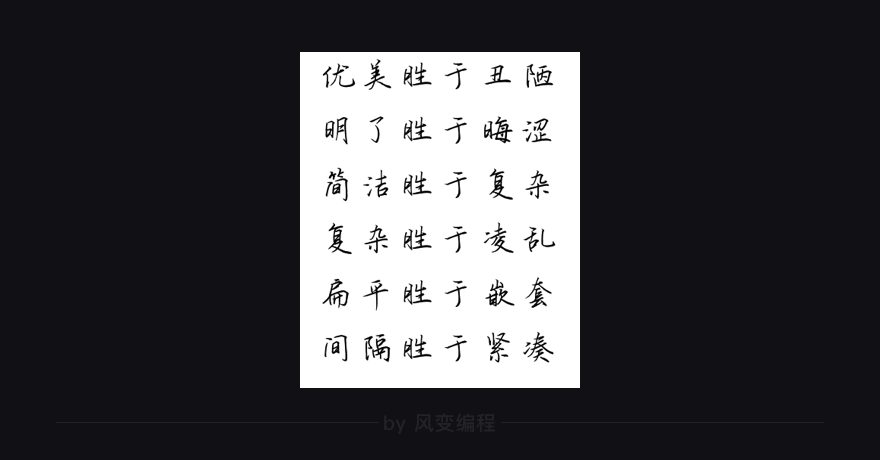 优美胜于丑陋
明了胜于晦涩
简洁胜于复杂
复杂胜于凌乱
扁平胜于嵌套
间隔胜于紧凑
by 风变编程